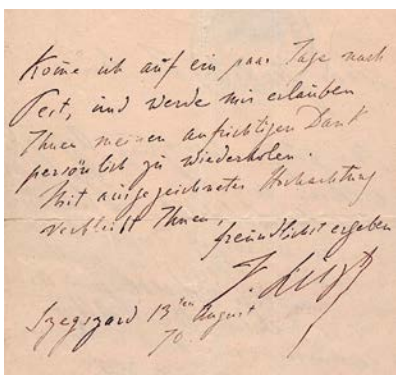 Kome ich auf ein paar Tage nach
Pest, und werde mir erlauben
Ihnen meinen aufrichtigen Dank
persönlich zu wiederholen.
Mit ausgezeichneter Hochachtung
verbleibt Ihnen,
freundlichst ergeben
F. Liszt
Szegszard 13ten August
70.